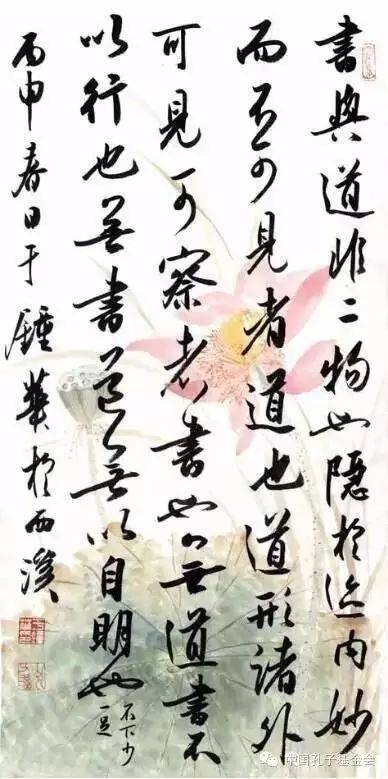 書與道非二物也隱於迹内妙
而不可見者道也道形諸外
可見可察者書也無道書不
以行也無書道無以自明也
不下少
一足
丙申春日于鍾華於西溪
中国孔子基金会